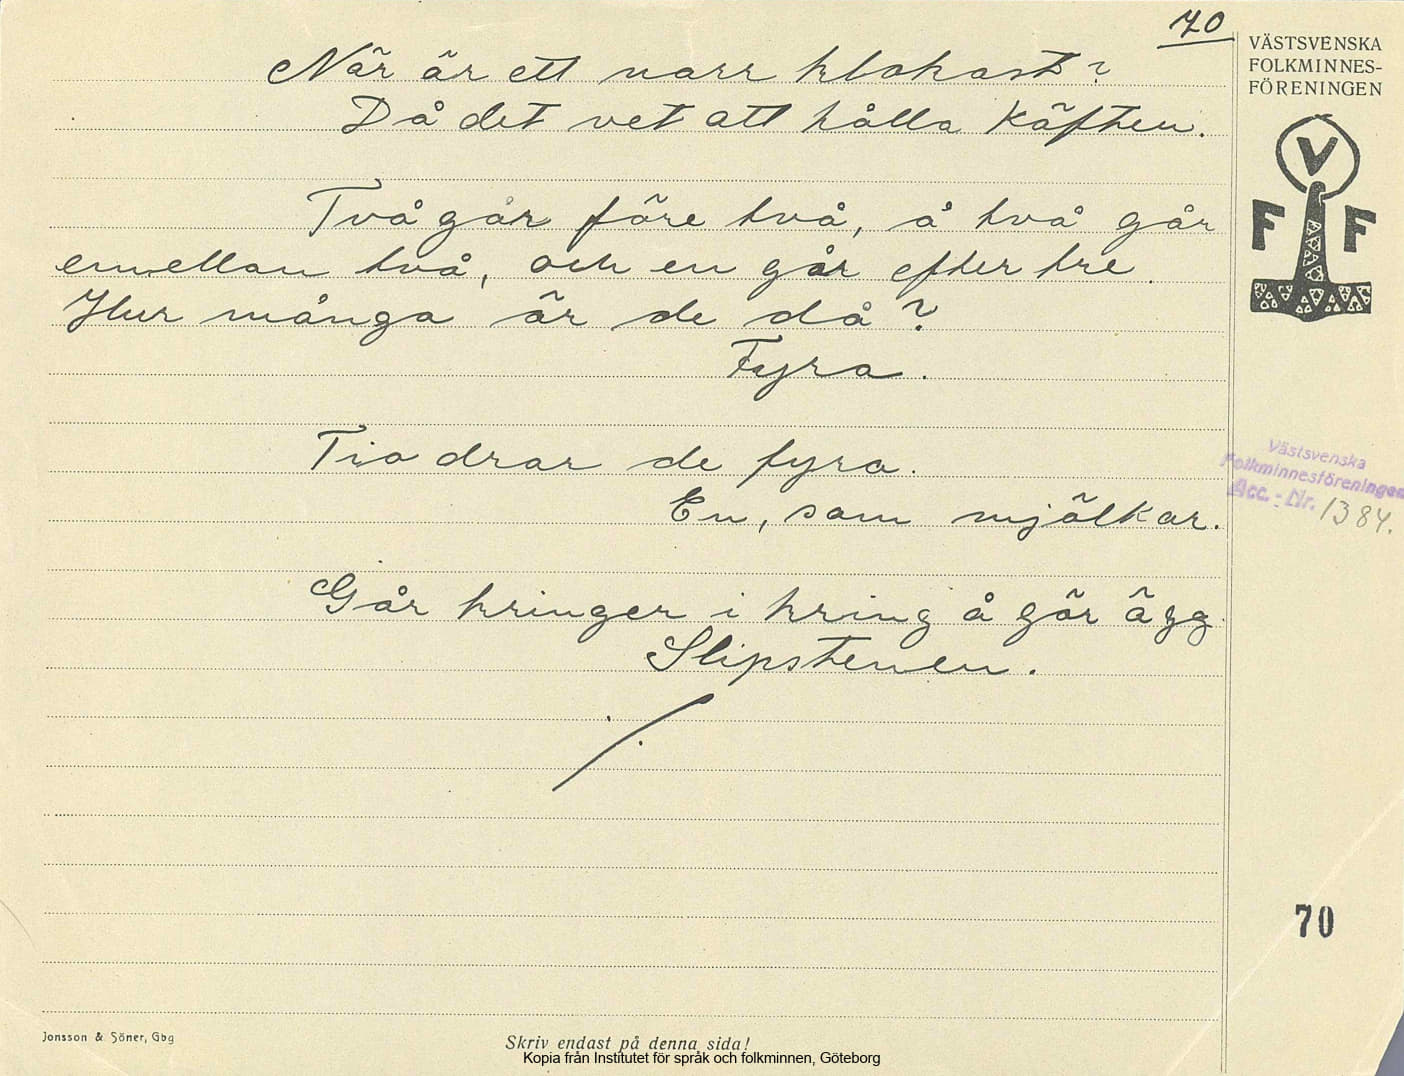 70
VÄSTSVENSKA
FOLKMINNES-
FÖRENINGEN
V
F F
När är ett narr klokast?
Då det vet att hålla käften.
Två går före två, å två går
emellan två, och en går efter tre.
Hur många är de då?
Fyra.
Tio drar de fyra.
En, som mjölkar.
Västsvenska
Folkminnesföreningen
Acc.-Nr. 1384.
Går kringer i kring å gör ägg.
Slipstenen.
70
Jonsson & Söner, Gbg
Skriv endast på denna sida!
Kopia från Institutet för språk och folkminnen, Göteborg